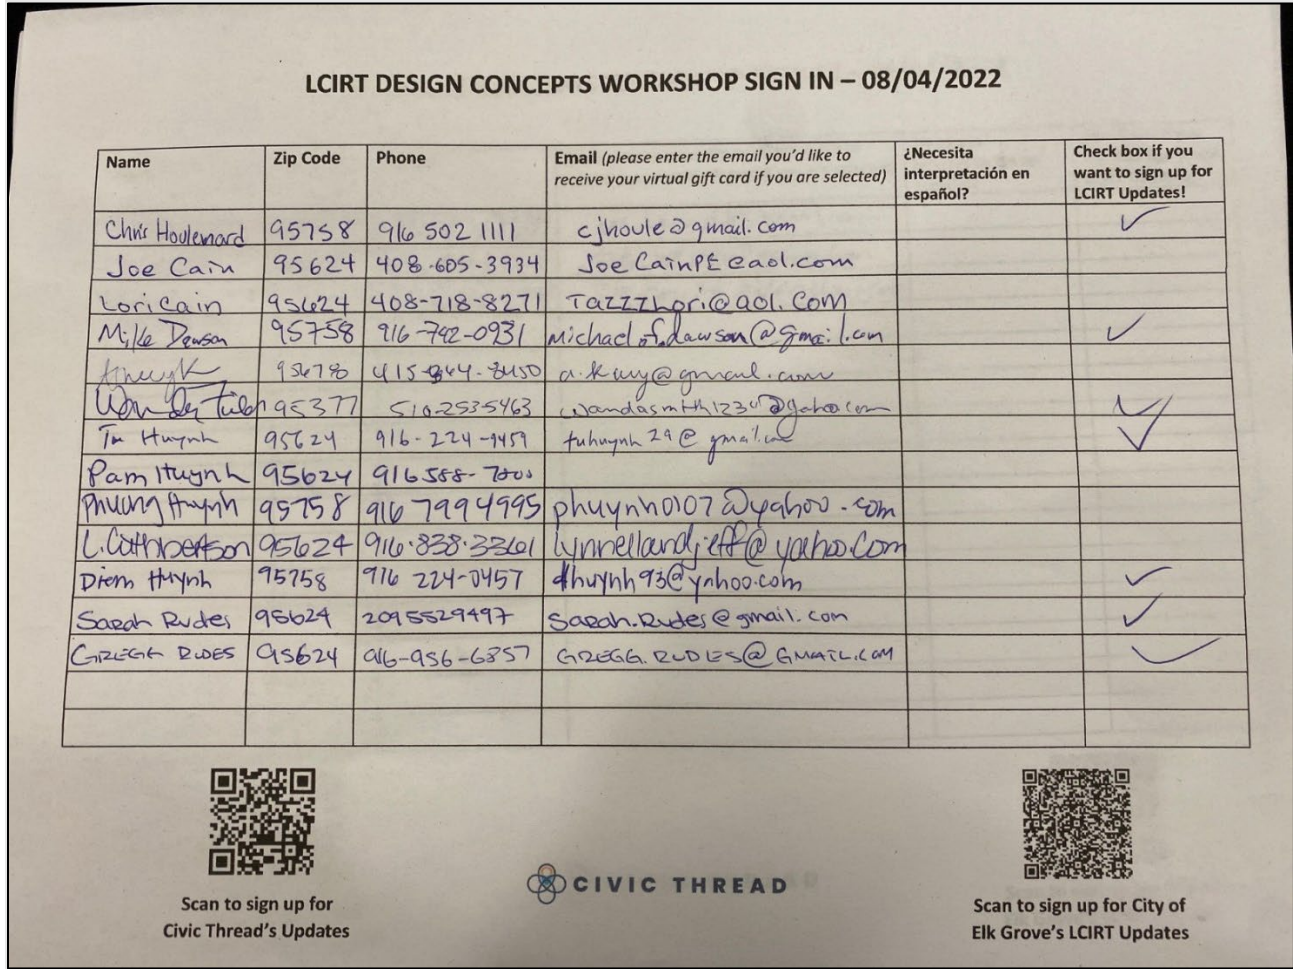 LCIRT DESIGN CONCEPTS WORKSHOP SIGN IN – 08/04/2022
Name Zip Code Phone Email (please enter the email you'd like to receive your virtual gift card if you are selected) ¿Necesita interpretación en español? Check box if you want to sign up for LCIRT Updates!
Chris Houlemard 95758 916 502 1111 cjhoule@gmail.com
Joe Cain 95624 408-605-3934 JoeCainPE@aol.com
Lori Cain 95624 408-718-8271 TazzzLori@aol.com
Mike Dawson 95758 916-742-0931 michael.f.dawson@gmail.com
415-844-8450 a.kuy@gmail.com
95377 510-253-5463
Tu Huynh 95624 916-224-9459 tuhuynh29@gmail.com
Pam Huynh 95624 916 588-7800
Phuong Huynh 95758 916 7994995 phuynh0107@yahoo.com
L. Cuthbertson 95624 916.838.3361 lynnellandjeff@yahoo.com
Diem Huynh 95758 916 224-0457 dhuynh93@yahoo.com
Sarah Rudes 95624 2095529497 Sarah.Rudes@gmail.com
GREGG RUDES 95624 916-956-6357 GREGG.RUDES@GMAIL.COM
Scan to sign up for
Civic Thread's Updates
CIVIC THREAD
Scan to sign up for City of
Elk Grove's LCIRT Updates